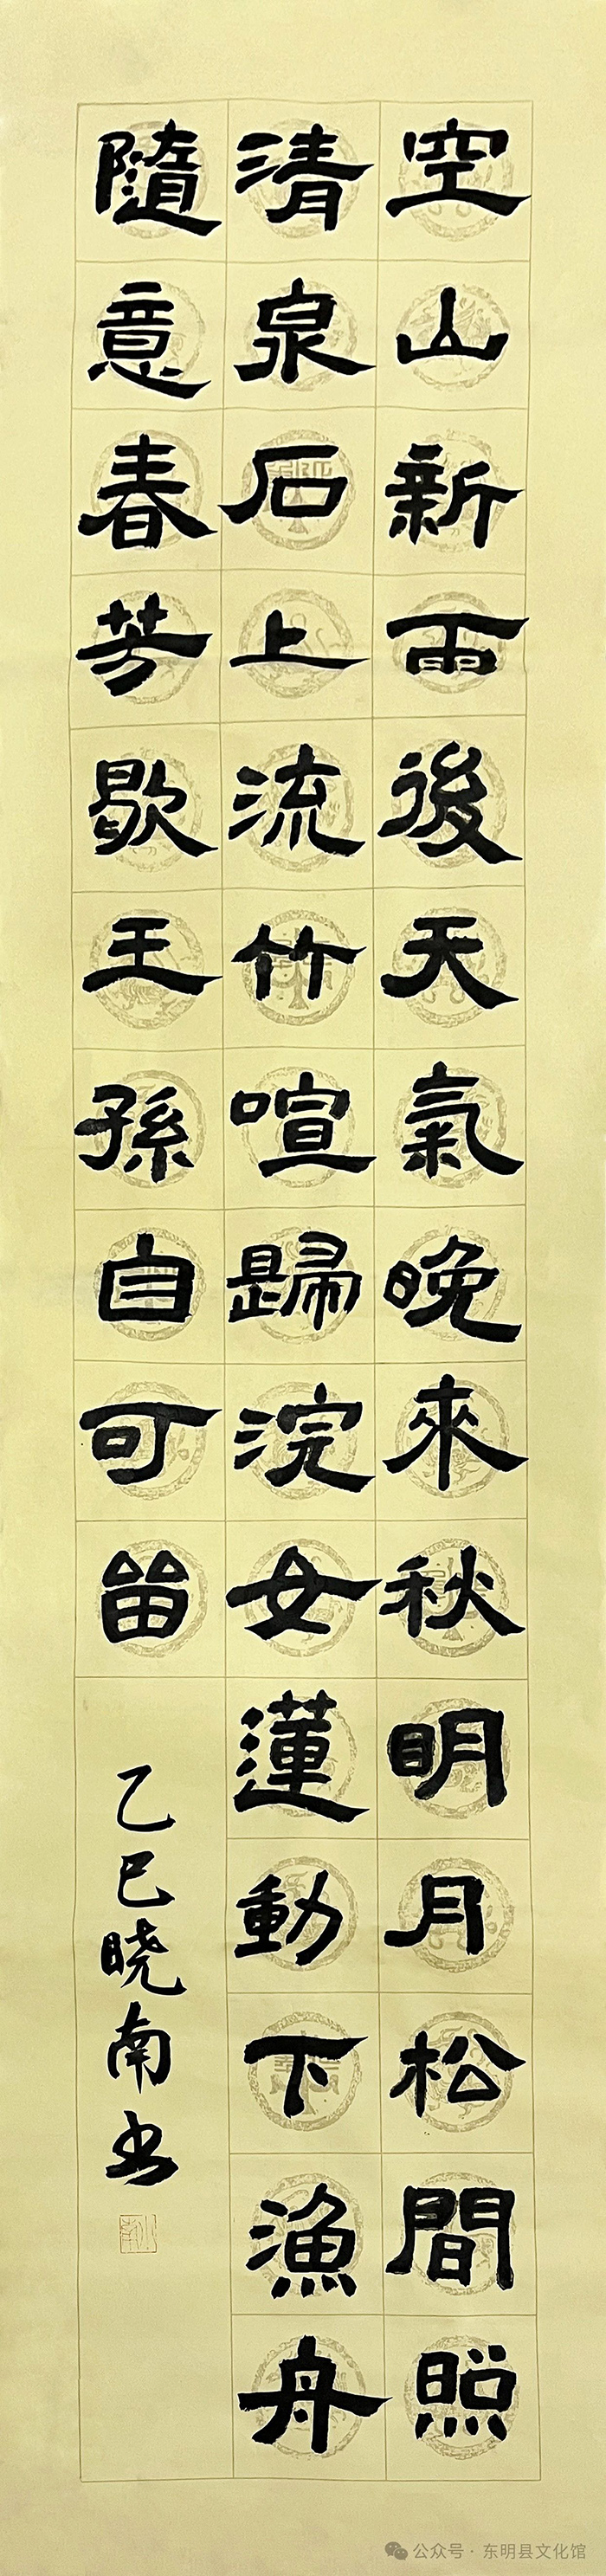 空山新雨後天氣晚來秋明月松間照
清泉石上流竹喧歸浣女蓮動下漁舟
隨意春芳歇王孫自可畱
乙巳晓南书
公众号·东明县文化馆